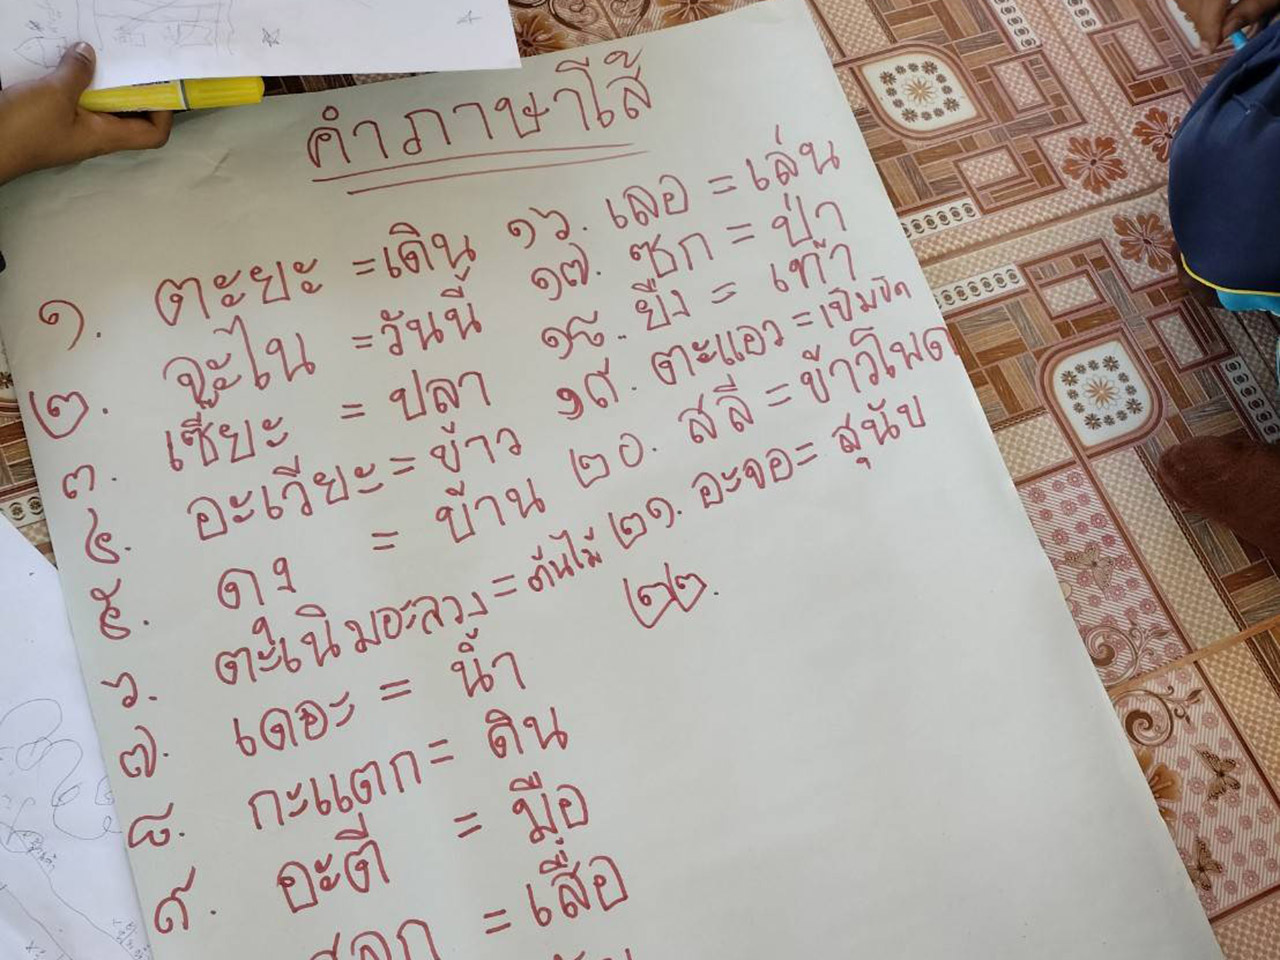 คำภาษาโส้
๑. ตะยะ = เดิน
๒. จุะไน = วันนี้
๓. เซียะ = ปลา
๔. อะเวียะ = ข้าว
๕. ดุง = บ้าน
๖. ตุเนิมอะลวง = ต้นไม้
๗. เดอะ = น้ำ
๘. กะแตก = ดิน
๙. อะตี = มือ
= เสือ
๑๖. เลอ = เล่น
๑๗. ซุก = ป่า
๑๘. ยึง = เท้า
๑๙. ตะแอว =
๒๐. สลี = ข้าวโพด
๒๑. อะจอ = สุนัข
๒๒.